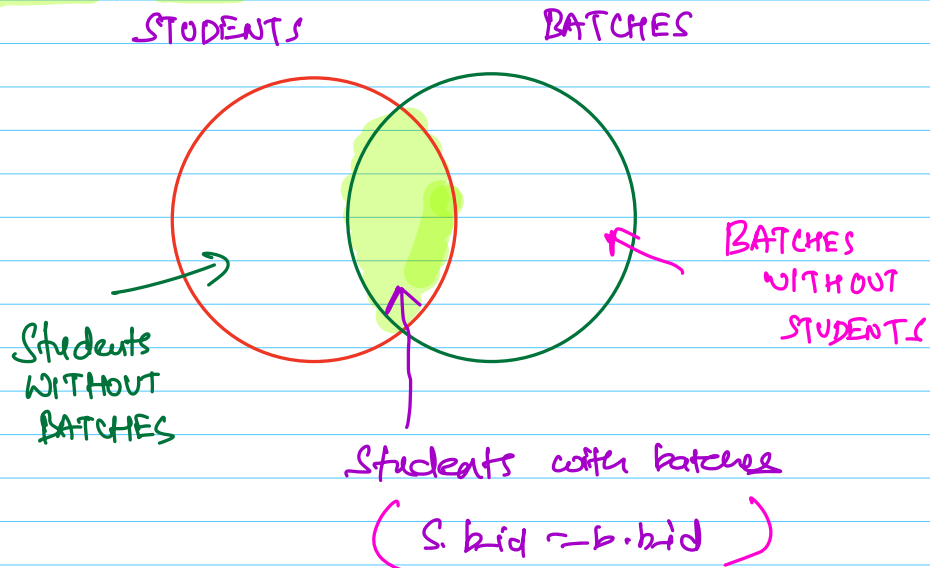 STUDENTS
BATCHES
BATCHES
WITHOUT
STUDENTS
Students
WITHOUT
BATCHES
Students with batches
(S.bid = b.bid)